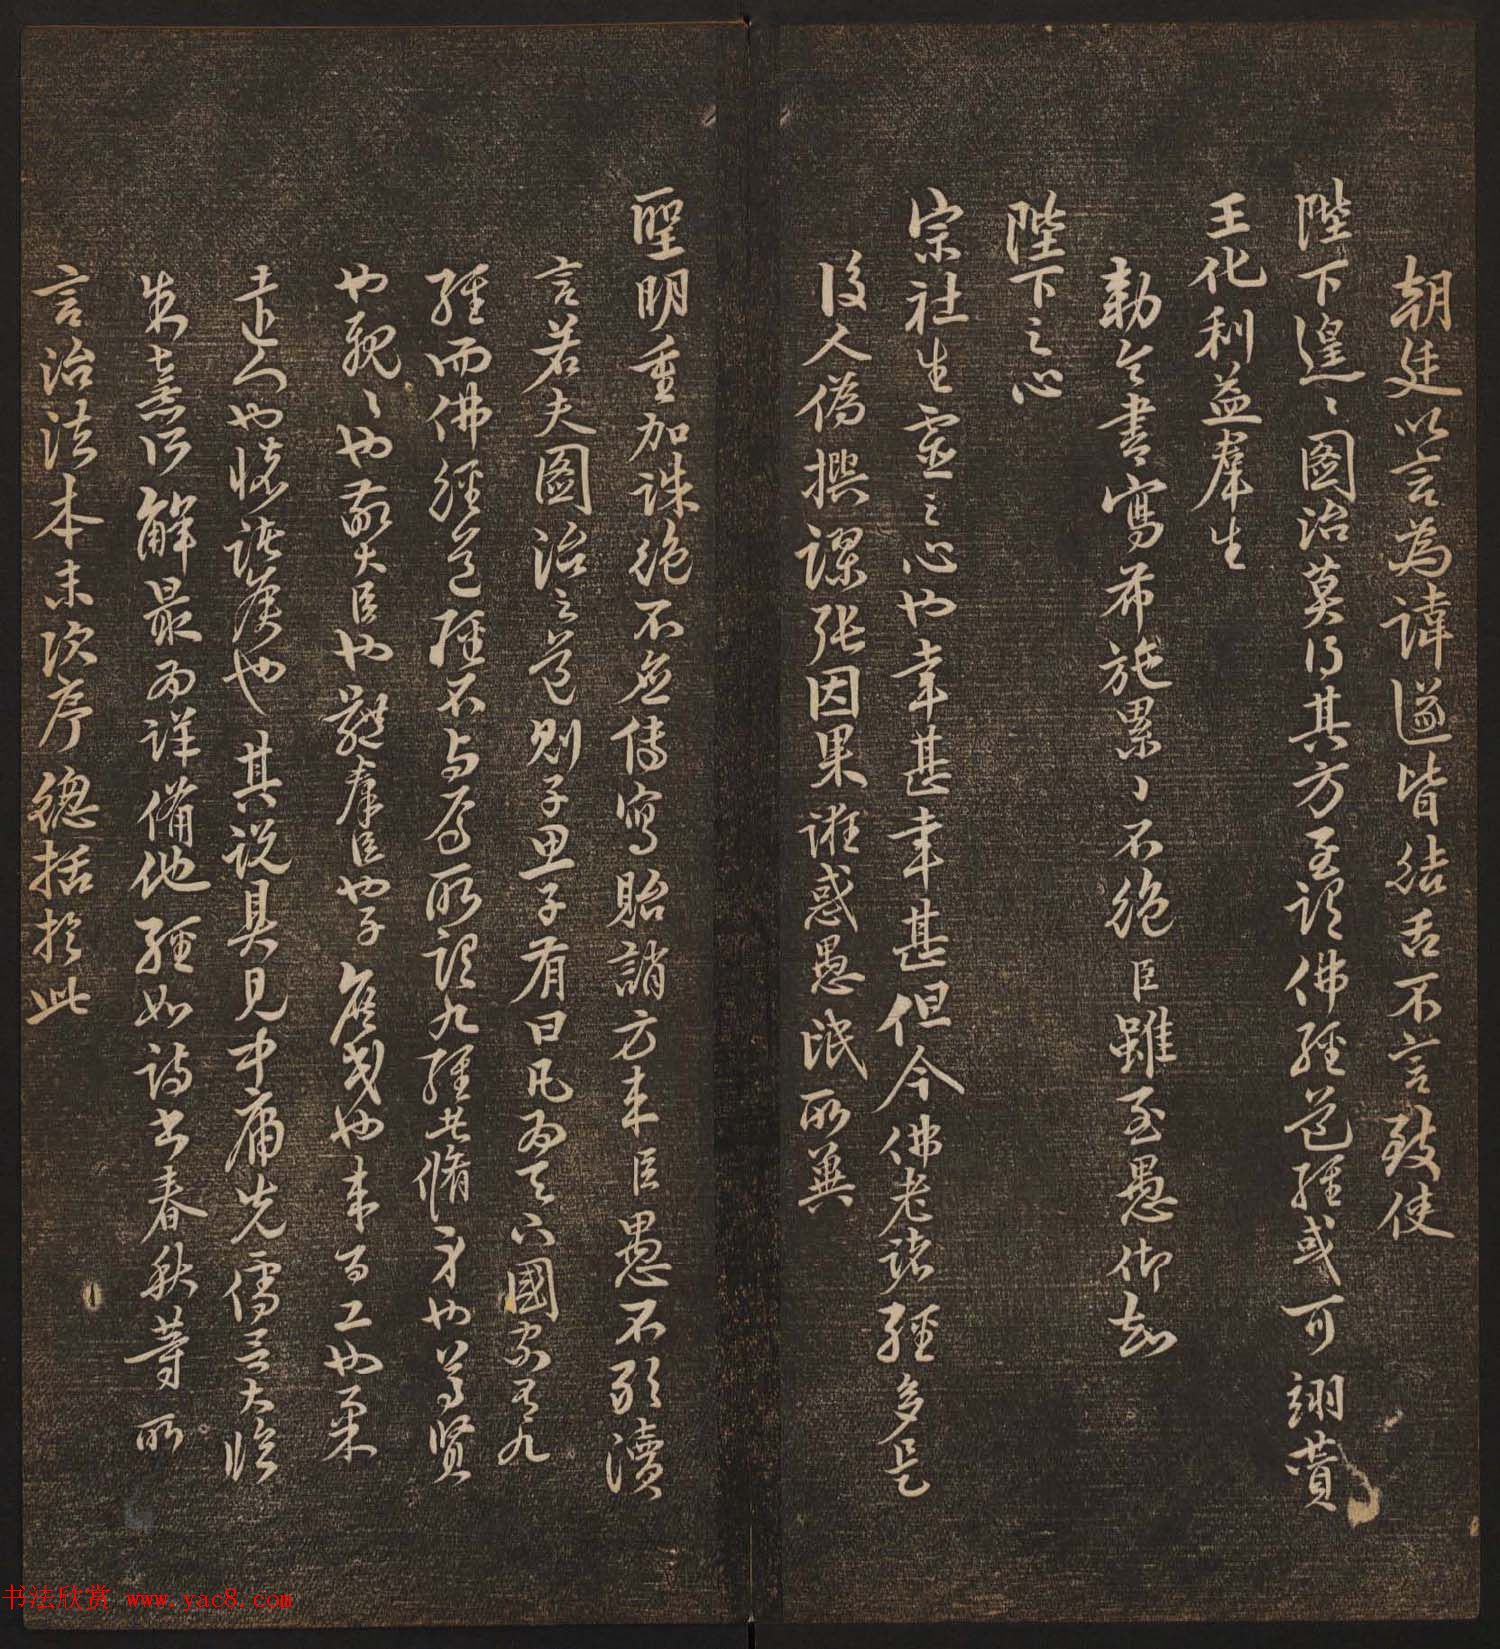 朝廷以言為諱遂皆結舌不言致使
陛下遑〻圖治莫得其方至謂佛經道經或可翊贊
王化利益羣生
勅令書寫布施累〻不絕臣雖至愚仰知
陛下之心
宗社生靈之心也幸甚幸甚但今佛老諸經多是
後人偽撰謬張因果誑惑愚氓所冀
聖明重加誅絕不應傳寫貽誚方來臣愚不敢瀆
言若夫圖治之道則子思子有曰凡為天下國家有九
經而佛經道經不與焉所謂九經者脩身也尊賢
也親〻也敬大臣也體羣臣也子庶民也來百工也柔
遠人也懷諸侯也其說具見中庸先儒呂大臨
朱熹所解最為詳備他經如詩書春秋等所
言治法本末次序總括於此
书法欣赏 www.yac8.com